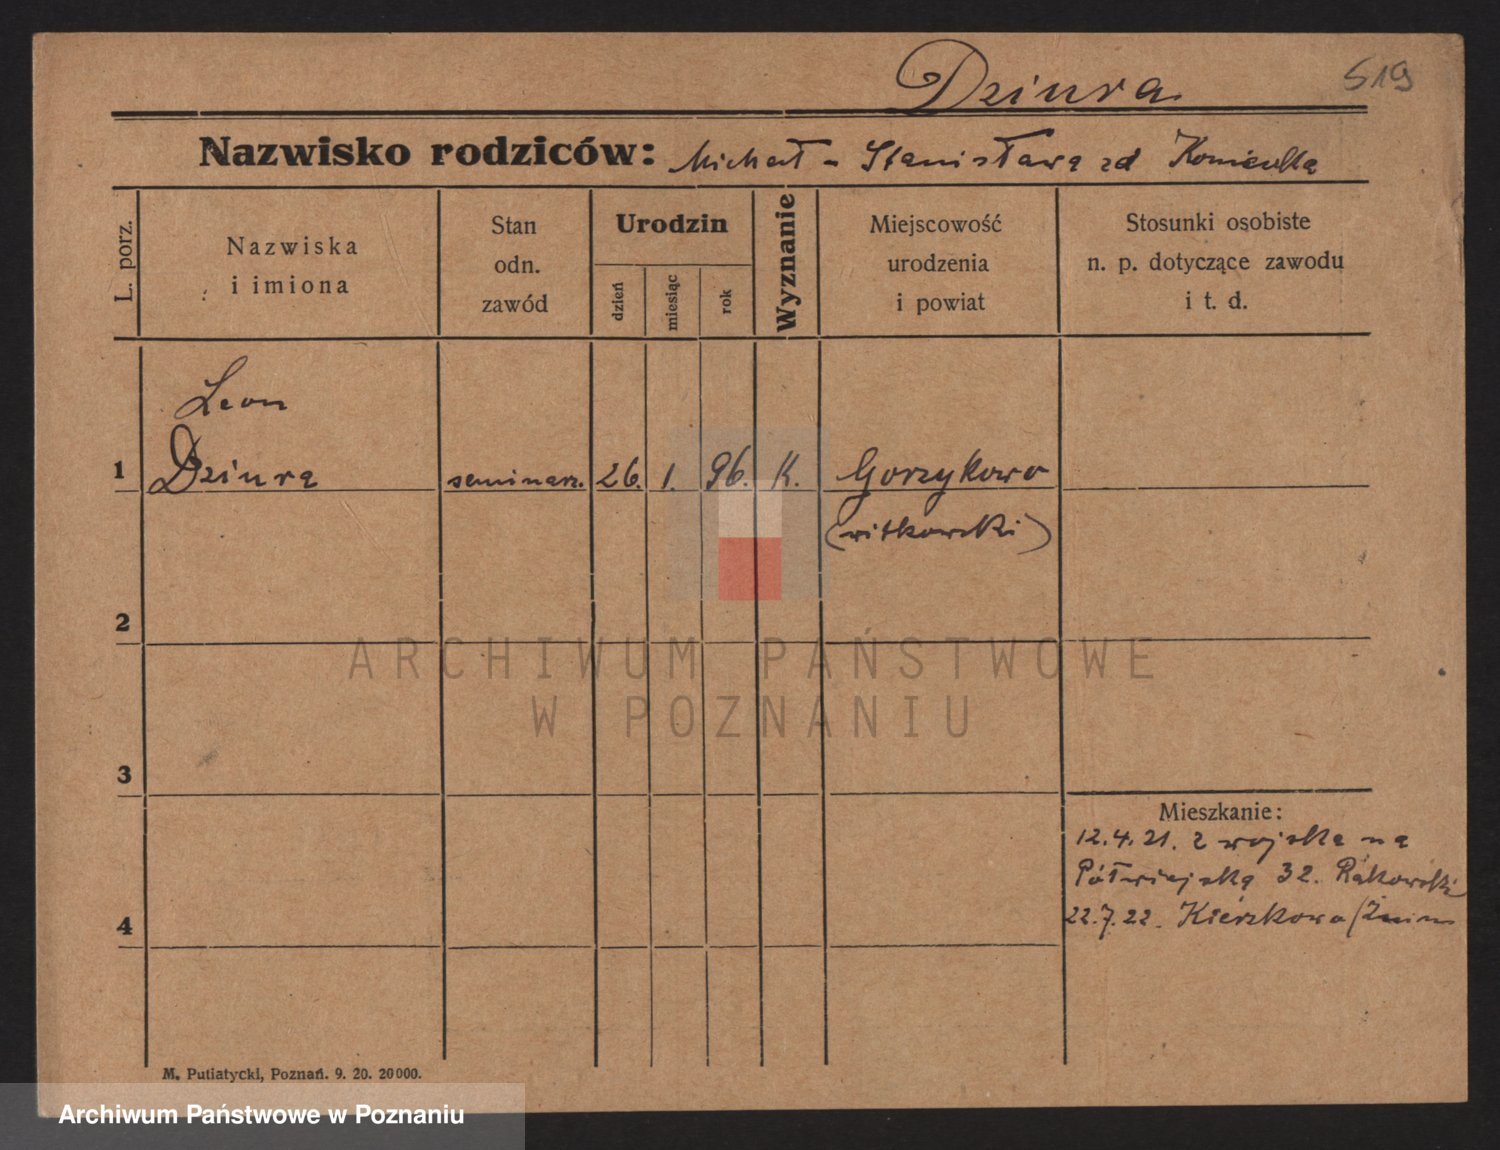 Dziura
519
Nazwisko rodziców: Michał - Stanisława zd
L. porz.
Nazwiska
i imiona
Stan
odn.
zawód
Urodzin
dzień
miesiąc
rok
Wyznanie
Miejscowość
urodzenia
i powiat
Stosunki osobiste
n. p. dotyczące zawodu
i t. d.
Leon
1 Dziura seminarz. 26. 1. 96. K. Gorzykowo
(witkowski)
2
ARCHIWUM PAŃSTWOWE
W POZNANIU
3
Mieszkanie:
12.4.21. z wojska na
Półwiejską 32. Rakowski
4 22.7.22. Kierzkowo (Żnin
M. Putiatycki, Poznań. 9. 20. 20000.
Archiwum Państwowe w Poznaniu